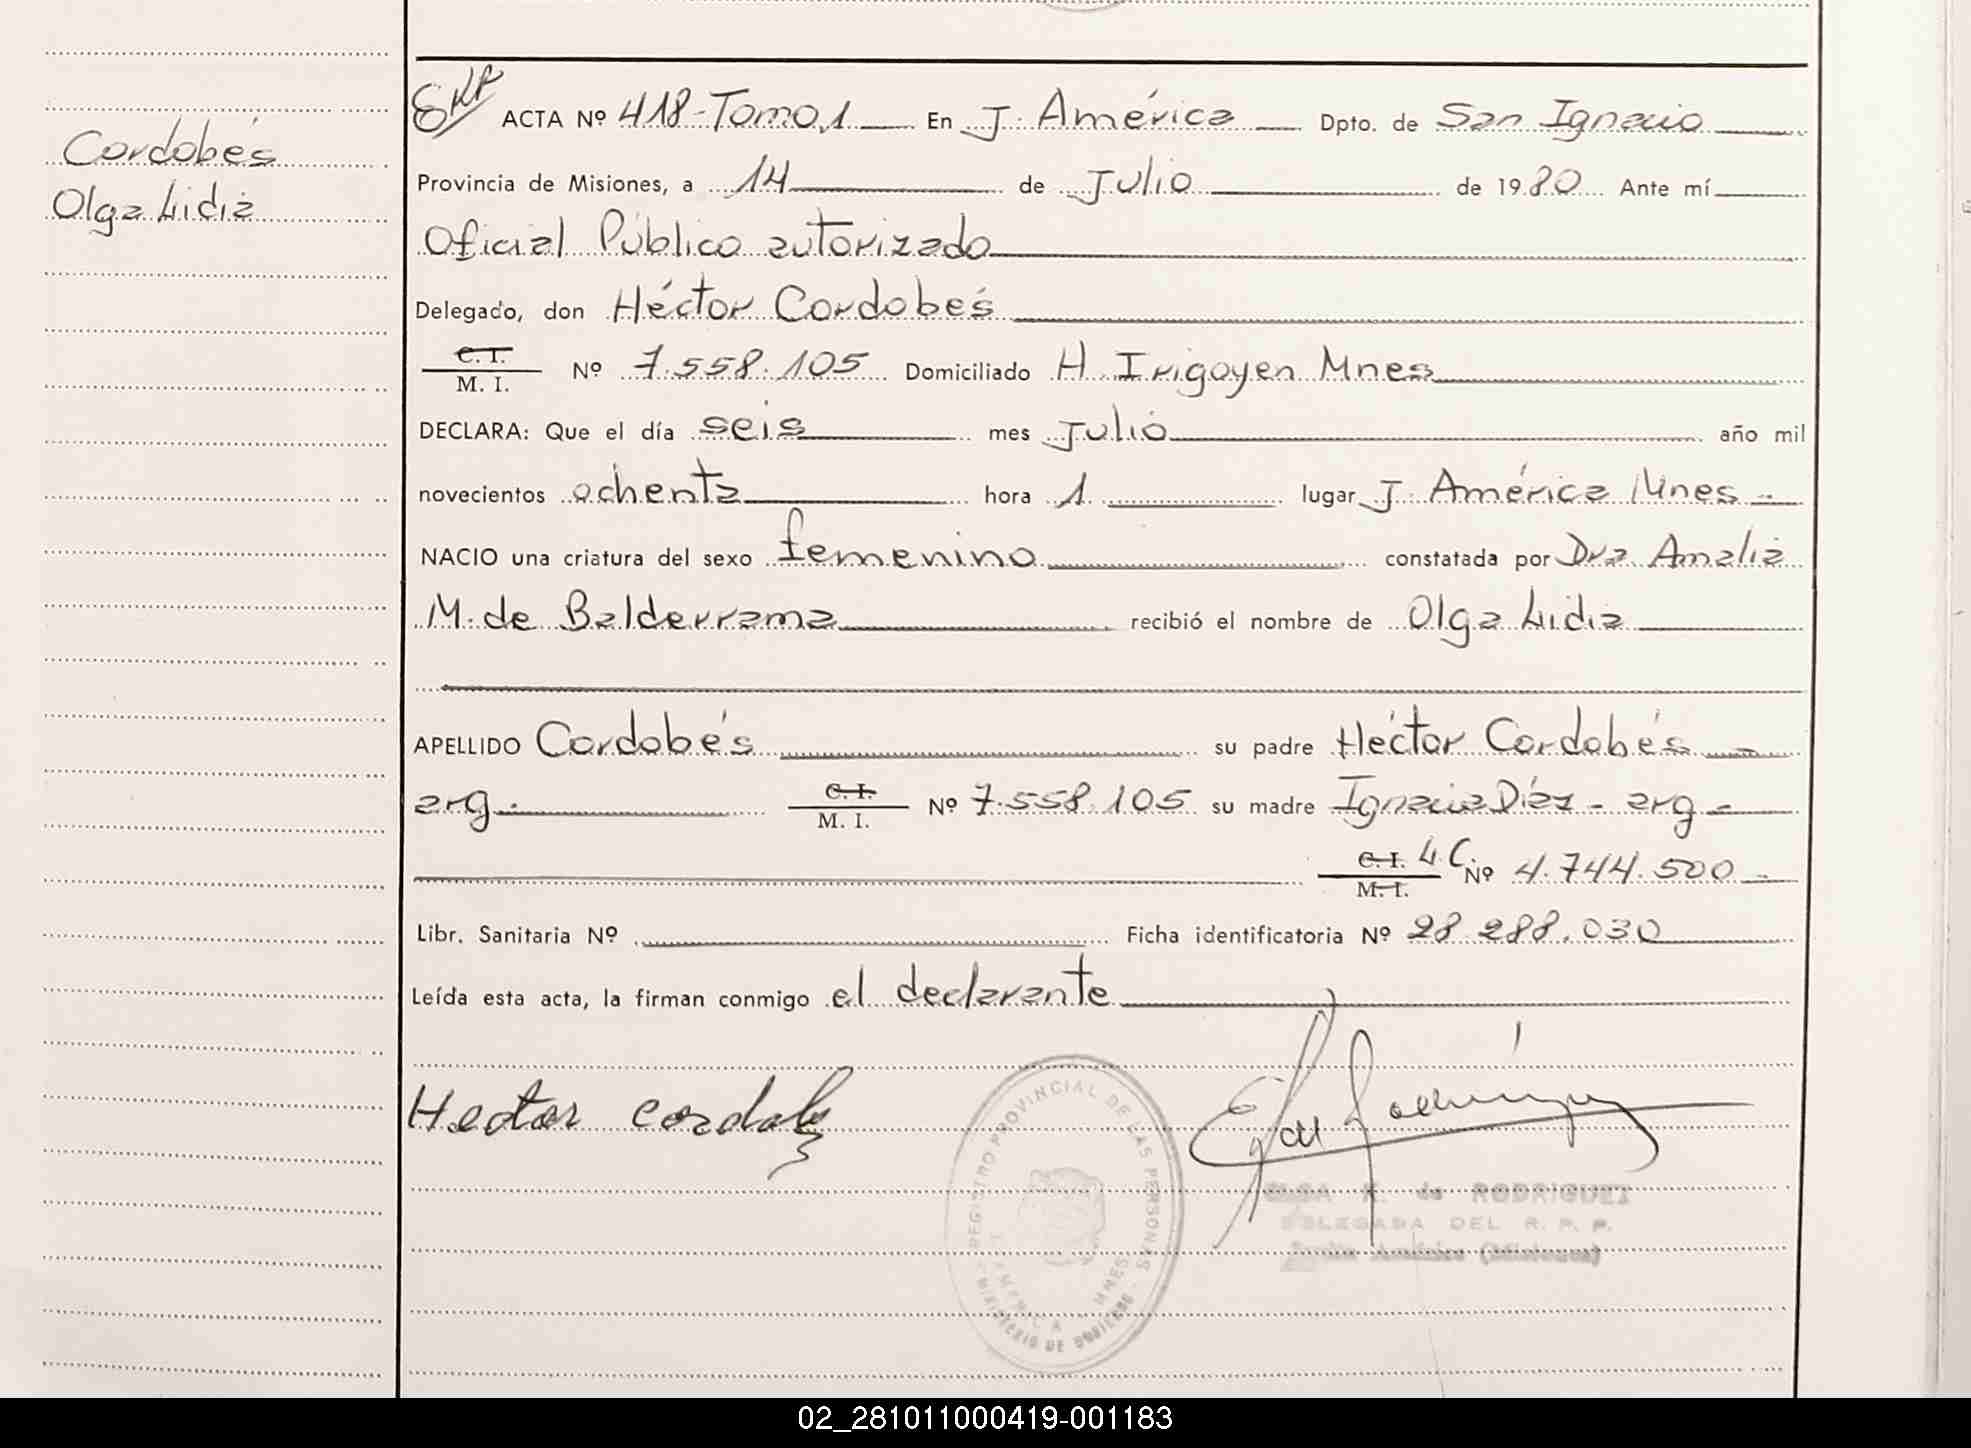 Cordobés
Olga Lidia
ACTA Nº 418-Tomo 1 En J. América Dpto. de San Ignacio
Provincia de Misiones, a 14 de Julio de 1980 Ante mí
Oficial Público autorizado
Delegado, don Héctor Cordobés
C. I.
M. I. Nº 7.558.105 Domiciliado H. Irigoyen Mnes
DECLARA: Que el día seis mes Julio año mil
novecientos ochenta hora 1 lugar J. América Mnes
NACIO una criatura del sexo femenino constatada por Dra. Amalia
M. de Balderrama recibió el nombre de Olga Lidia
APELLIDO Cordobés su padre Héctor Cordobés
arg. C. I. M. I. Nº 7.558.105 su madre Ignacia Díaz - arg -
C. I. L.C. M. I. Nº 4.744.500
Libr. Sanitaria Nº Ficha identificatoria Nº 28.288.030
Leída esta acta, la firman conmigo el declarante
Hector cordobes
REGISTRO PROVINCIAL DE LAS PERSONAS
AMERICA MNES
MINISTERIO DE GOBIERNO
de RODRIGUEZ
DELEGADA DEL R. P. P.
América (Misiones)
02_281011000419-001183